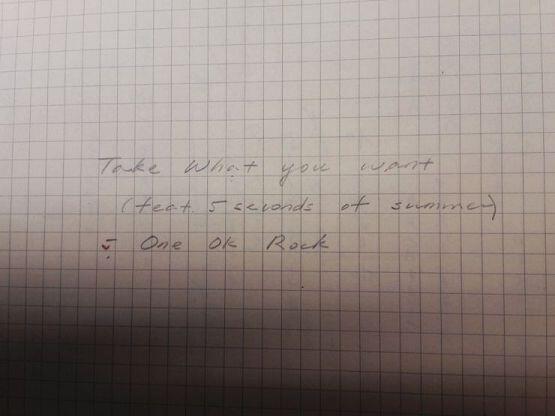 Take What you want
(feat. 5 seconds of summer)
- One Ok Rock